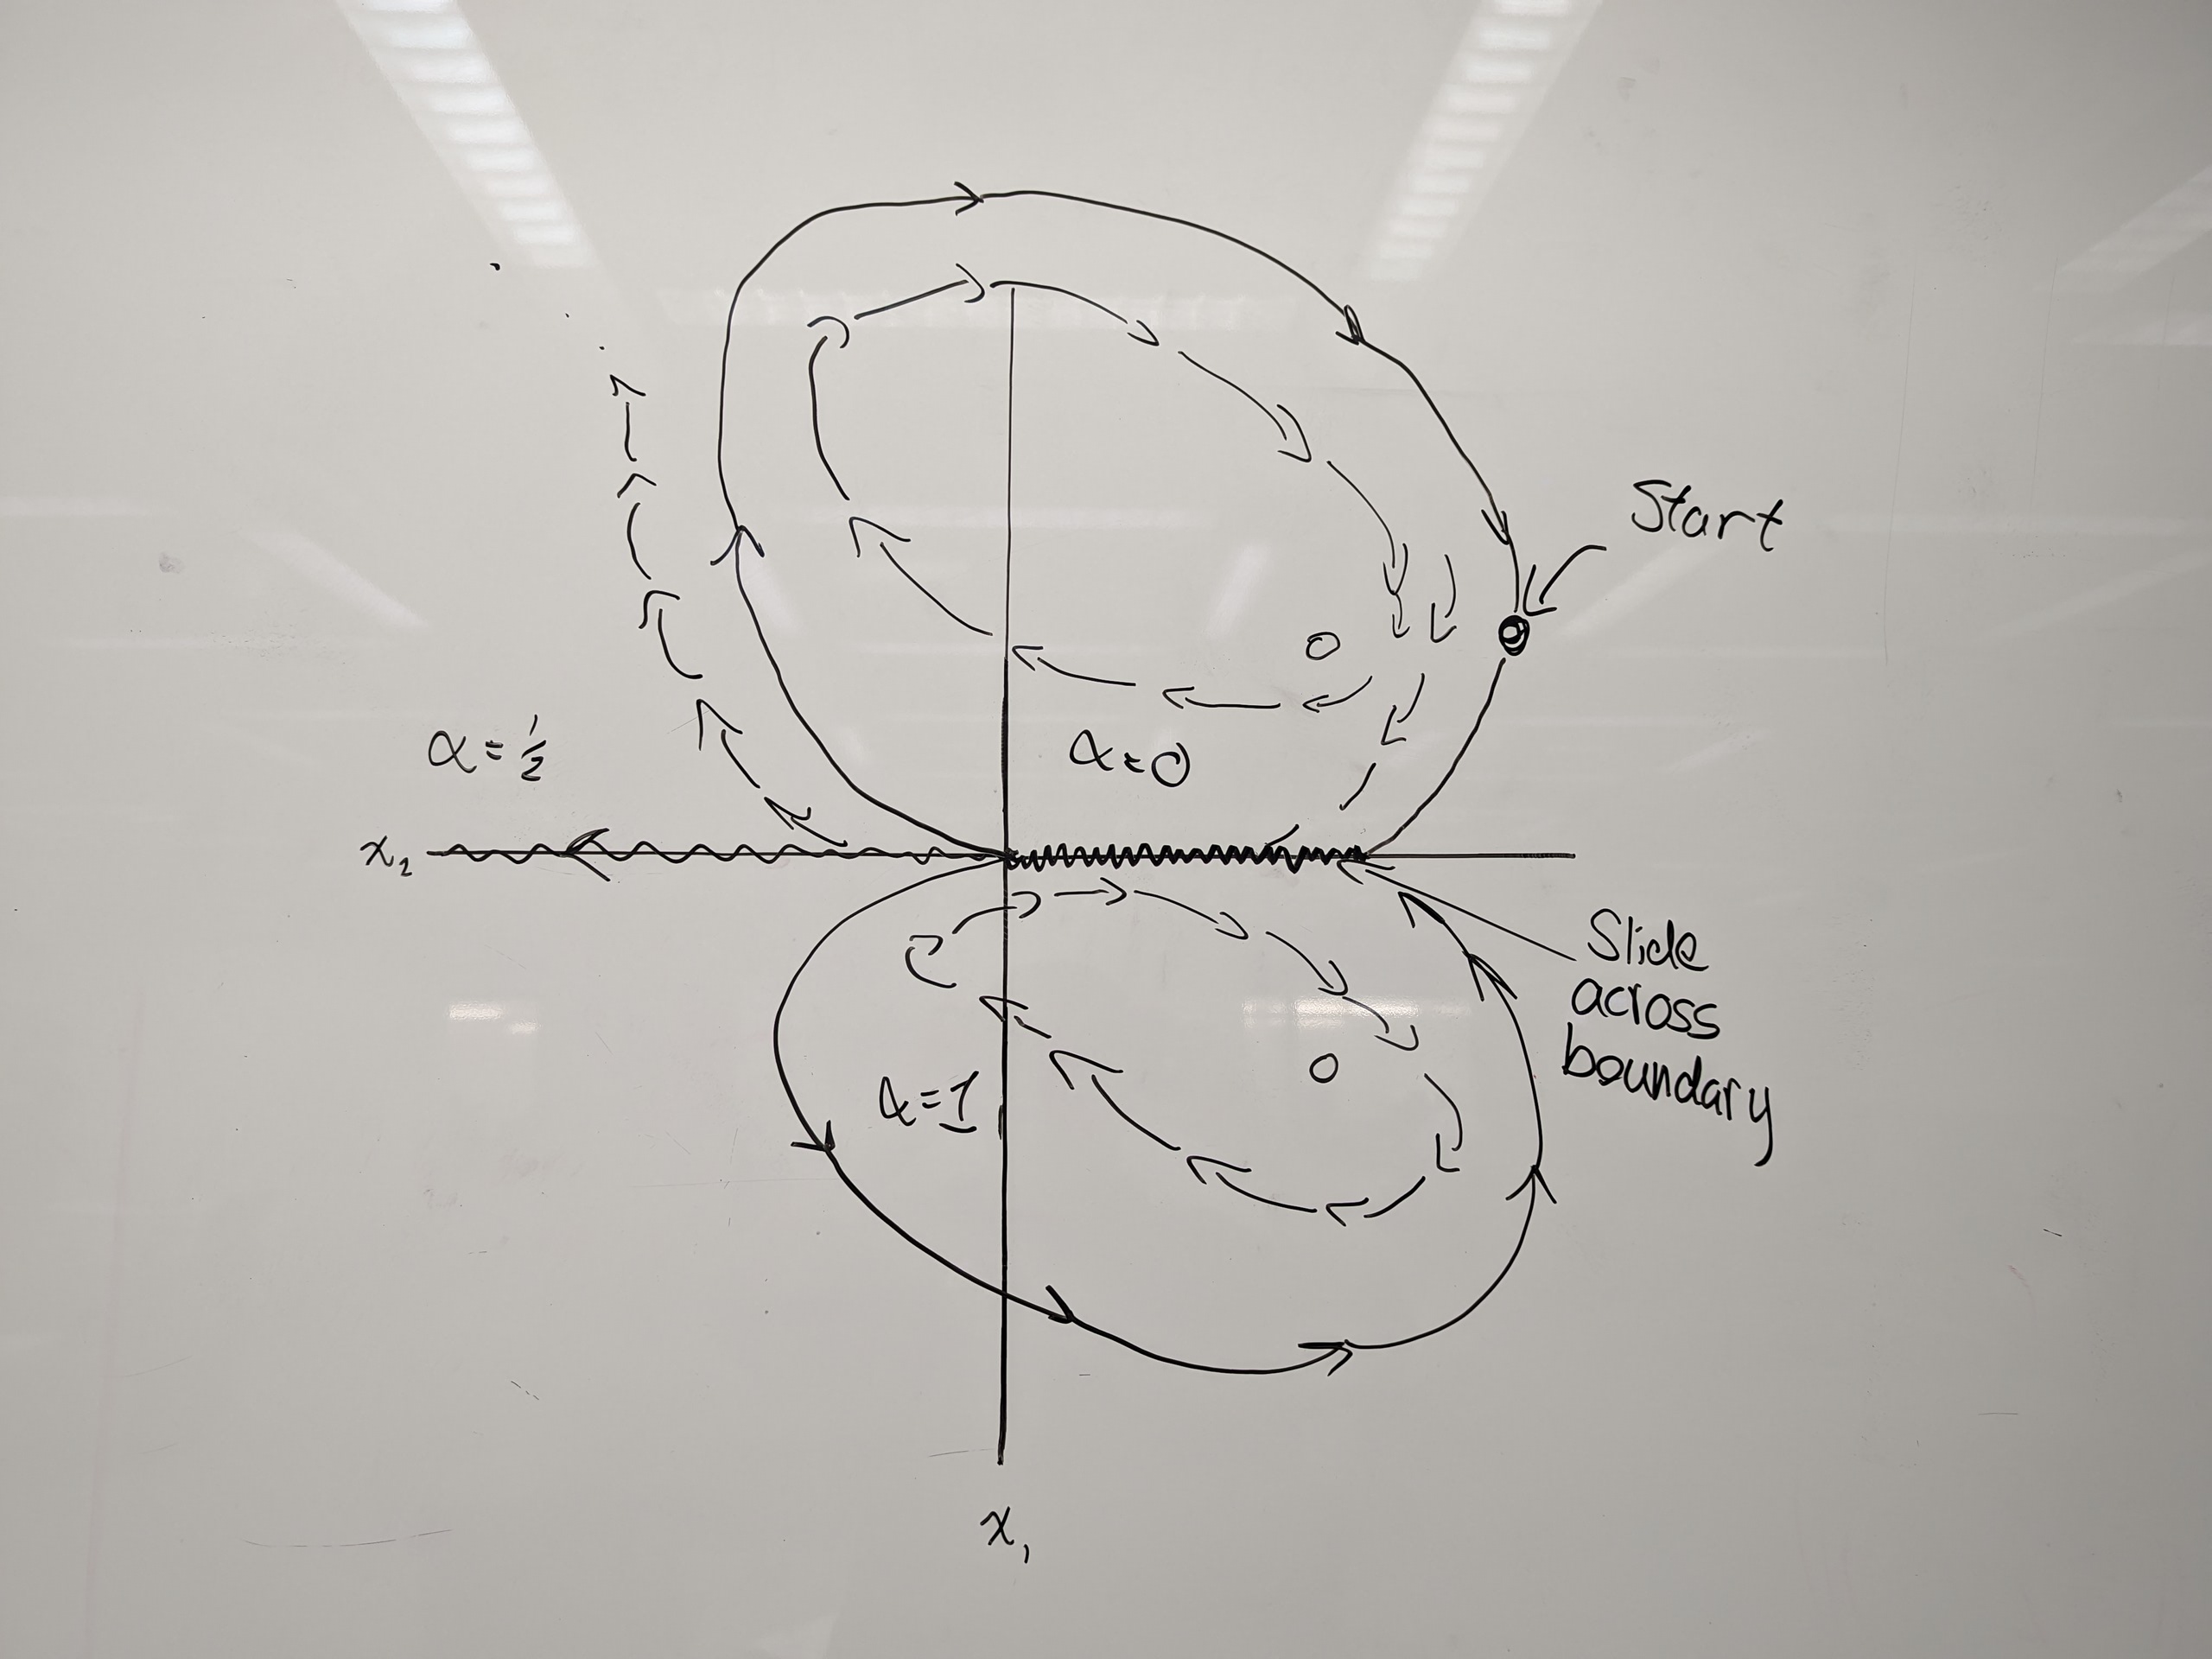 Start
α = 1/2
α = 0
x₂
Slide
across
boundary
α = 1
x₁